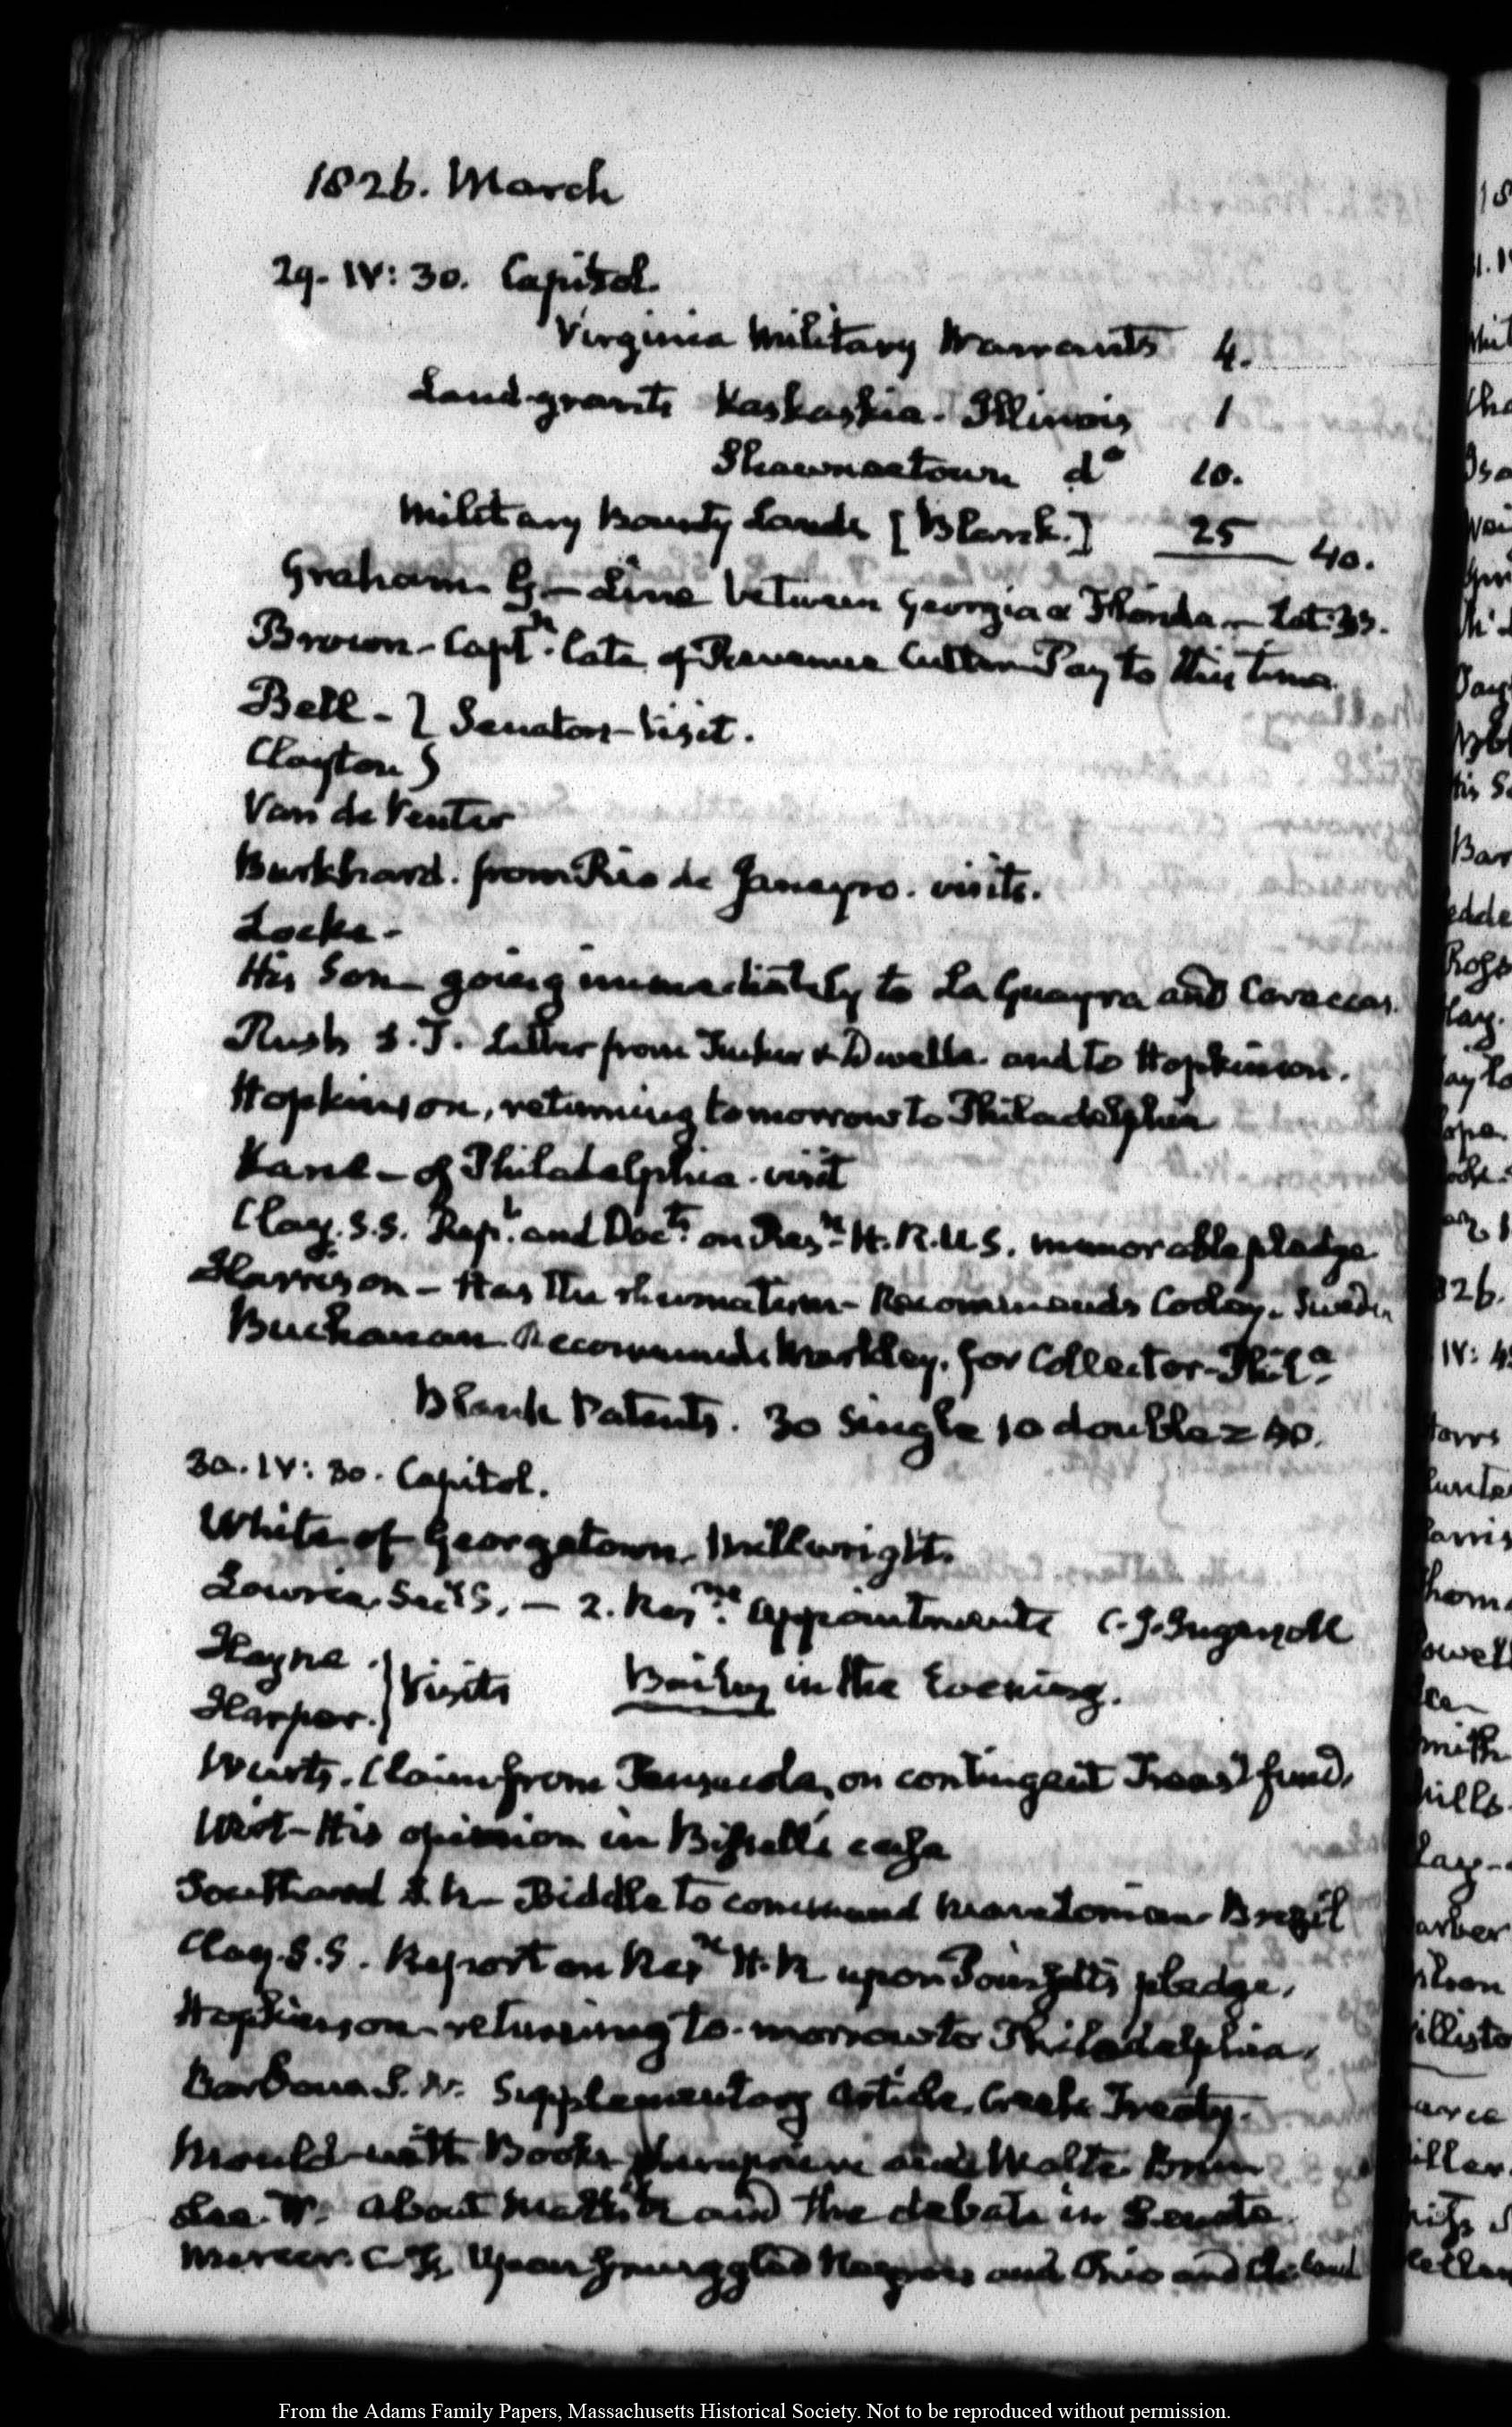 1826. March
29. IV: 30. Capitol.
Virginia Military Warrants 4.
Land-grants Kaskaskia. Illinois 1
Shawneetown do 10.
Military Bounty Lands [Blank.] 25 40.
Graham G— Line between Georgia & Florida—
Brown— Captn. late of Revenue Cutter Pay to this time
Bell— } Senators—Visit.
Clayton }
Van de Venter
Burkhard. from Rio de Janeyro. visits.
Locke—
His Son— going immediately to La Guayra and Caraccas.
Rush S.T. Letter from Tucker & and to Hopkinson.
Hopkinson, returning tomorrow to Philadelphia
Kane— of Philadelphia. visit
Clay. S.S. Rept. and Docts. on Resn. H.R.U.S. memorable pledge
Harrison— Has the rheumatism— Recommends Sweden
Buchanan Recommends Markley. for Collector—Phila.
Blank Patents. 30 Single 10 double = 40.
30. IV: 30. Capitol.
White of Georgetown. Millwright.
Lowrie Secy S. — 2. Resns. Appointments C. J. Ingersoll
Hayne. } Visits Bailey in the Evening.
Harper. }
Claim from on contingent Treasy fund.
Wirt—His opinion in case
Southard S.N— Biddle to command Macedonian— Brazil
Clay. S.S. Report on Resn H.R upon Poinsett's pledge.
Hopkinson— returning to-morrow to Philadelphia.
Barbour S.W. Supplementary Article. Creek Treaty.
Mould with Books and Malte Brun
Lee. W. about and the debate in Senate.
Mercer. C.F. Upon smuggled Negroes and Ohio and
From the Adams Family Papers, Massachusetts Historical Society. Not to be reproduced without permission.